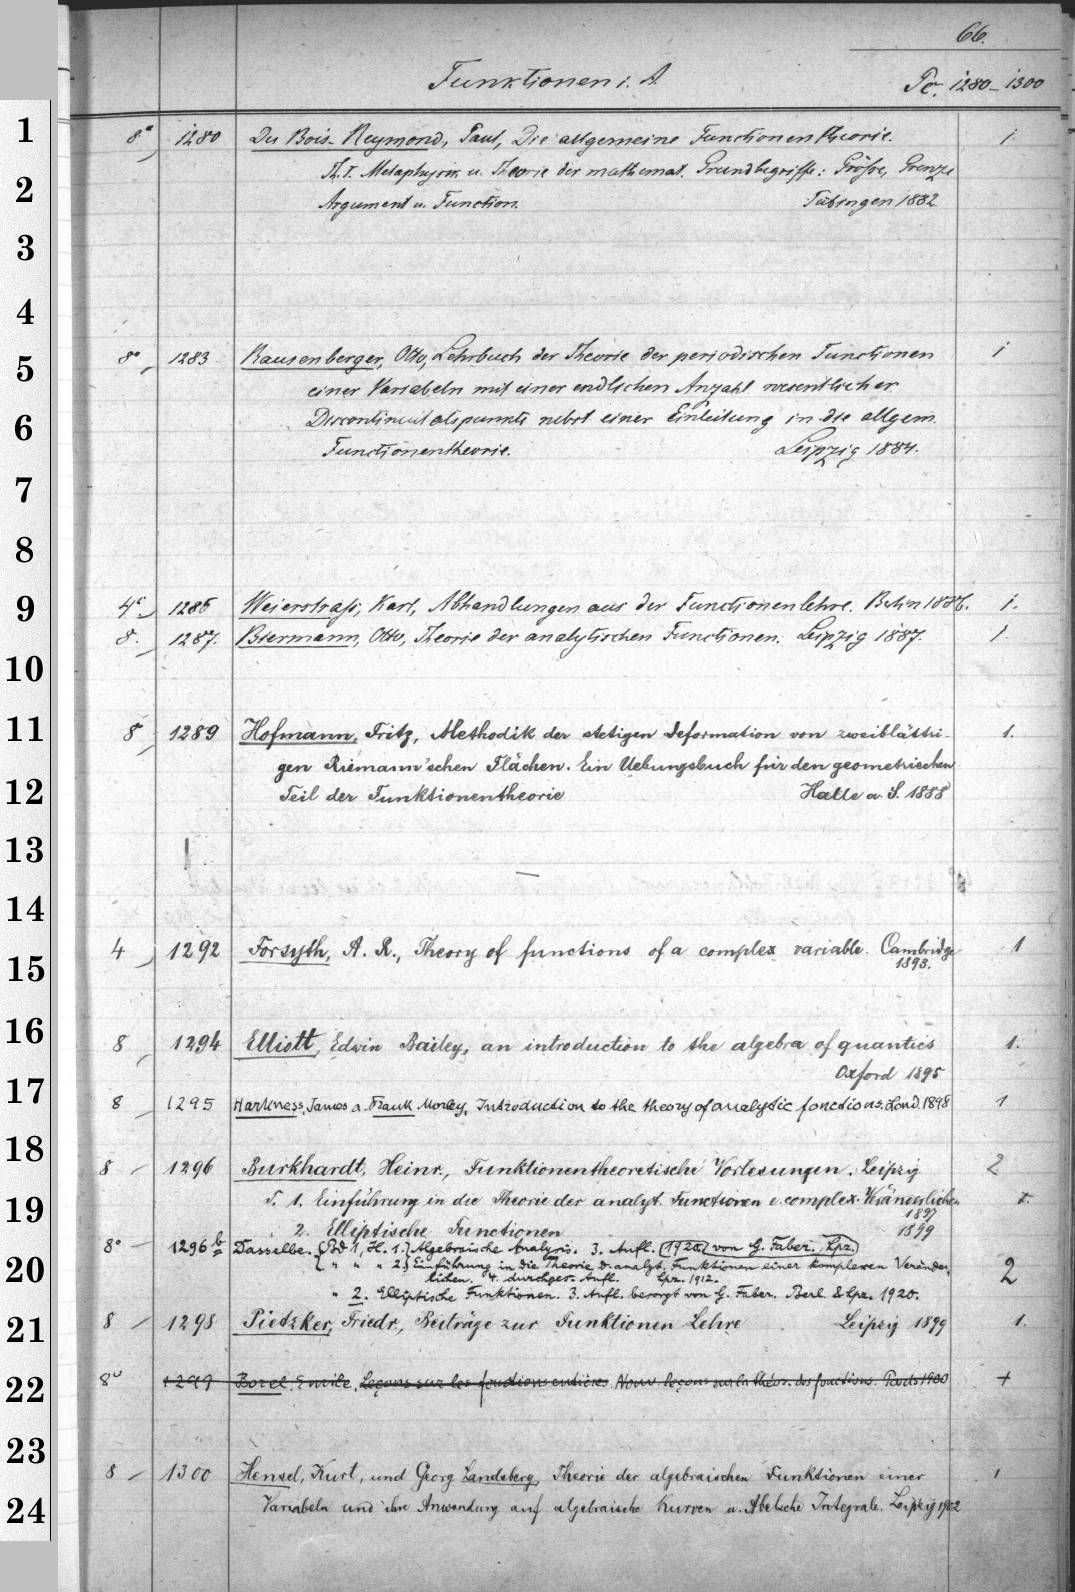 66.
Funktionen i. A
Pc. 1280–1300
8° 1280 Du Bois-Reymond, Paul, Die allgemeine Functionentheorie. 1
Th. I. Metaphysik u. Theorie der mathemat. Grundbegriffe: Grösse, Grenze
Argument u. Function. Tübingen 1882
8° 1283 Rausenberger, Otto, Lehrbuch der Theorie der periodischen Functionen 1
einer Variabeln mit einer endlichen Anzahl wesentlicher
Discontinuitätspunkte nebst einer Einleitung in die allgem.
Functionentheorie. Leipzig 1884.
4° 1286 Weierstraß, Karl, Abhandlungen aus der Functionenlehre. Berlin 1886. 1.
8. 1287. Biermann, Otto, Theorie der analytischen Functionen. Leipzig 1887. 1
8 1289 Hofmann, Fritz, Methodik der stetigen Deformation von zweiblättri- 1.
gen Riemann'schen Flächen. Ein Uebungsbuch für den geometrischen
Teil der Funktionentheorie Halle a. S. 1888
4 1292 Forsyth, A. R., Theory of functions of a complex variable. Cambridge 1
1893.
8 1294 Elliott, Edwin Bailey, an introduction to the algebra of quantics 1.
Oxford 1895
8 1295 Harkness, James a. Frank Morley, Introduction to the theory of analytic functions. Lond. 1898 1
8 1296 Burkhardt, Heinr., Funktionentheoretische Vorlesungen. Leipzig 2
T. 1. Einführung in die Theorie der analyt. Functionen e. complex. Veränderlichen
1897
2. Elliptische Functionen 1899
8° 1296b Dasselbe. Bd 1, H. 1. Algebraische Analysis. 3. Aufl. 1920 von G. Faber. Lpz.
" " " 2. Einführung in die Theorie d. analyt. Funktionen einer komplexen Veränder- 2
lichen. 4. durchges. Aufl. Lpz. 1912.
" 2. Elliptische Funktionen. 3. Aufl. besorgt von G. Faber. Berl. & Lpz. 1920.
8 1298 Pietzker, Friedr., Beiträge zur Funktionen Lehre Leipzig 1899 1.
8° 1299 Borel, Emile, Leçons sur les fonctions entières Nouv. leçons sur la théor. des fonctions. Paris 1900 +
8 1300 Hensel, Kurt, und Georg Landsberg, Theorie der algebraischen Funktionen einer 1
Variabeln und ihre Anwendung auf algebraische Kurven u. Abelsche Integrale. Leipzig 1902
1
2
3
4
5
6
7
8
9
10
11
12
13
14
15
16
17
18
19
20
21
22
23
24